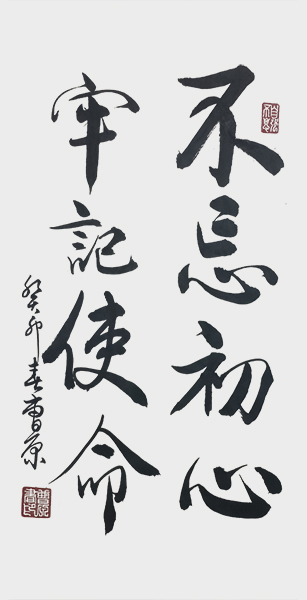 不忘初心
牢記使命
癸卯春曹原